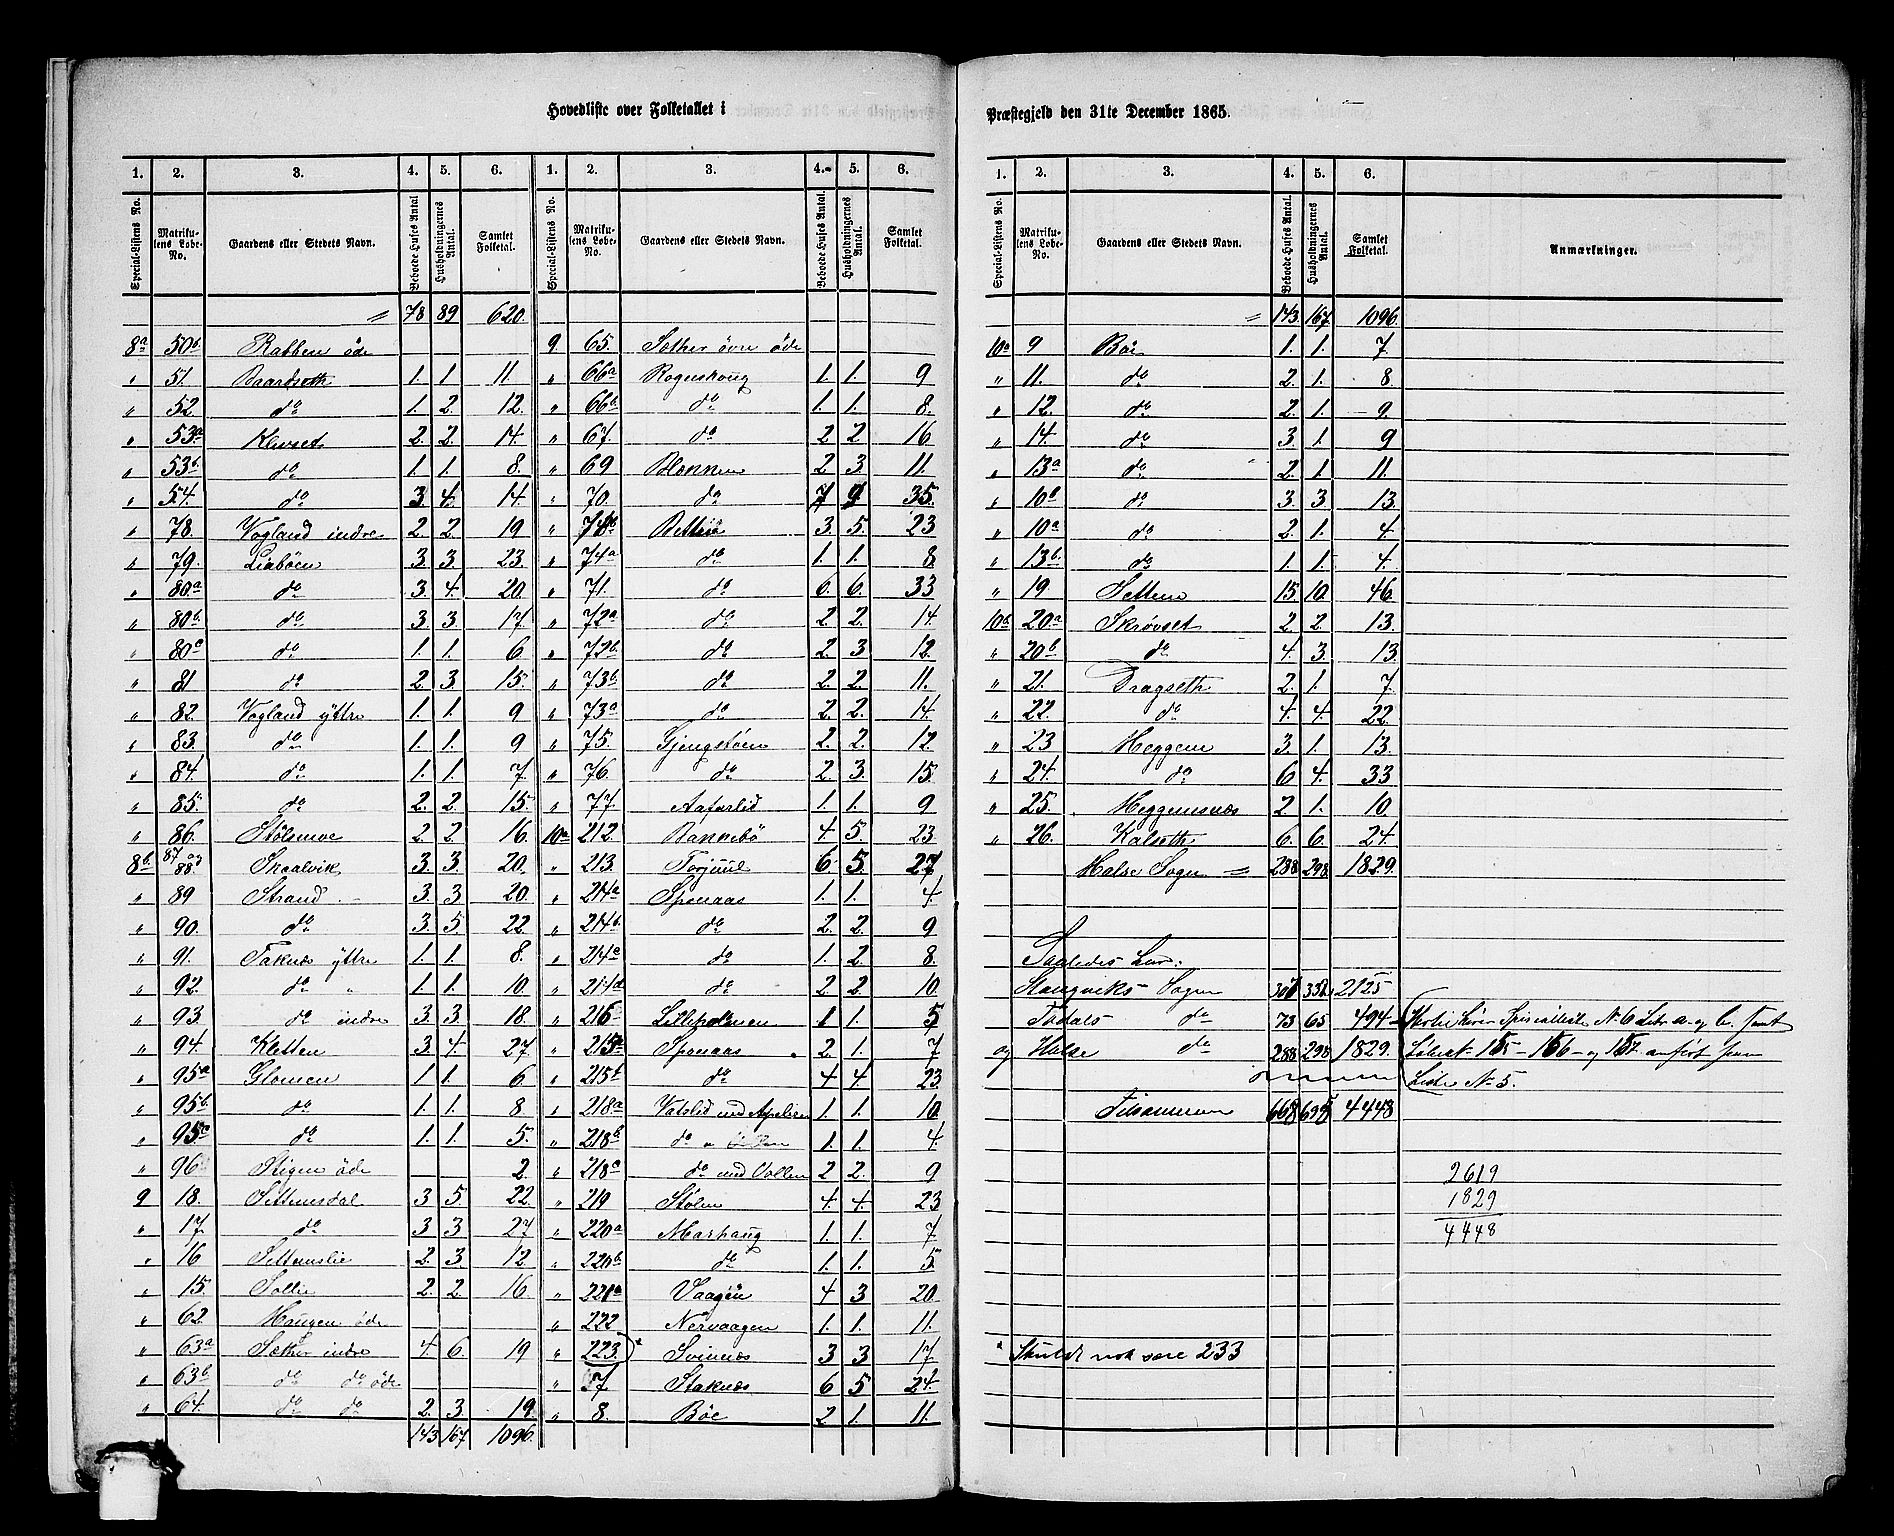 Hovedliste over Folketallet i
Præstegjeld den 31te December 1865.
1. 2. 3. 4. 5. 6. 1. 2. 3. 4. 5. 6.
Special-Listens No. Matrikulens Løbe-No. Gaardens eller Stedets Navn. Beboede Huses Antal. Husholdningernes Antal. Samlet Folketal. Special-Listens No. Matrikulens Løbe-No. Gaardens eller Stedets Navn. Beboede Huses Antal. Husholdningernes Antal. Samlet Folketal.
= 78 89 620.
8a 50b. Rabben öde
" 51. Baardseth 1. 1 11.
" 52. do 1. 2. 12.
" 53a Klevset 2. 2. 14.
" 53b. do 1. 1. 8.
" 54. do 3. 4. 14.
" 78. Vogland indre 2. 2. 19
" 79. Liaböen 3. 3. 23.
" 80a do 3. 4. 20.
" 80b. do 3 3. 17.
" 80c do 1. 1. 6.
" 81 do 2. 3. 15.
" 82. Vogland yttre 1. 1. 9
" 83. do 1. 1. 9
" 84. do 1. 1. 7
" 85. do 2. 2. 15.
" 86. Stölsmoe 2. 2. 16.
8b. 87 og 88. Skaalvik 3. 3. 20.
" 89 Strand 3. 3 20.
" 90. do 3. 5. 22.
" 91. Taknæs yttre 1. 1. 8.
" 92. do " 1. 1. 10.
" 93. do indre 3. 3. 18.
" 94. Kletten 3. 4. 27
" 95a Glomen 1. 1. 6.
" 95b. do 1. 1. 8.
" 95a do 1. 1. 5.
" 96 Stigen öde 2.
9 18. Settemsdal 3 5. 22.
" 17. do 3 3. 27.
" 16 Settemslie 2. 3. 12.
" 15. Sollie 2. 2. 16.
" 62. Haugen öde
" 63a Sæther indre 4 6. 19
" 63b do do öde
" 64. do do 2. 3. 19.
143 167 1096.
9 65. Sæther övre öde
" 66a Rognskoug 1. 1. 9
" 66b do 1. 1. 8.
" 67. do 2 2 16
" 69 Blekken 2 3 11.
" 70. do 7 9 35.
" 74b Betten 3. 5. 23
" 74a do 1. 1. 8
" 71. do 6. 6. 33
" 72a do 2 2. 14
" 72b. do 2. 3 12.
" 73b. do 2. 2. 11.
" 73a. do 2. 2. 14.
" 75. Gjengstöen 2. 2. 12.
" 76. do 2. 3. 15.
" 77. Aafarlid 1. 1. 9
10a 212. Bannebö 4. 5. 23
" 213. Torjuul 6. 5. 27
" 214a Sponaas 1. 1. 4.
" 214b. do 2. 2. 9
" 214a do 1. 2. 8.
" 214d do 2 2. 10
" 216 Lilleholmen 1 1. 5
" 215a Sponaas 2. 1. 7
" 215b do 4 4. 23
" 218a Vatslid med 1. 1. 10
" 218b do 1. 1. 4.
" 218a do med Vollen 2 2. 9
" 219 Stölen 4. 4. 23
" 220a Marhaug 1. 1. 7
" 220b do 1. 1. 5
" 221a Vaagen 4 3 20.
" 222 Nervaagen 1. 1. 11.
" 223. Svinnæs 3 3 17
" 7 Staknæs 6 5 24.
" 8. Böe 2 1. 11.
1. 2. 3. 4. 5. 6.
Special-Listens No. Matrikulens Løbe-No. Gaardens eller Stedets Navn. Beboede Huses Antal. Husholdningernes Antal. Samlet Folketal. Anmærkninger.
= 143 167. 1096.
10a 9 Böe 1. 1. 7.
" 11. do 2. 1. 8.
" 12. do 2. 1. 9.
" 14. do 3. 1. 9
" 13a do 2. 1 11.
" 10b do 3. 3 13.
" 10a do 2. 1. 4.
" 13b. do 1. 1. 4.
" 19. Settem 15. 10. 46.
10b. 20a Skrövset 2. 2. 13.
" 20b do 4. 3. 13.
" 21. Dragseth 2. 1. 7.
" 22. do 4. 4. 22.
" 23 Heggem 3. 1. 13.
" 24. do 6 4. 33
" 25. Heggemsnæs 2. 1. 10
" 26. Kalseth 6. 6. 24.
Halse Sogn = 288 298 1829.
Saaledes har:
Stangviks Sogn 307 332 2125
Todals do 73 65 494
og Halse do 288 298 1829.
Tilsammen 4448
No 6 Litr a og b. samt
155 - 156 - og 157. anført paa
Liste No 5.
2619
1829
4448
Skulde nok være 233